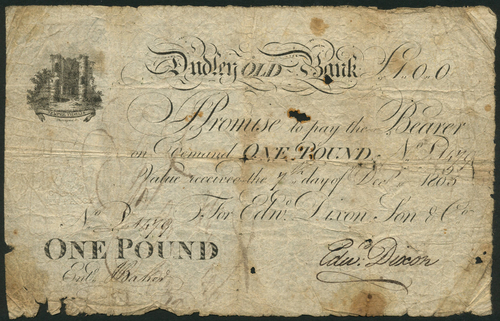 Dudley OLD Bank £1.0.0
I Promise to pay the Bearer
on Demand ONE POUND
Value received the 7th day of Decr 1805
For Edwd Dixon Son & Co
No
ONE POUND
Entd
Edwd Dixon